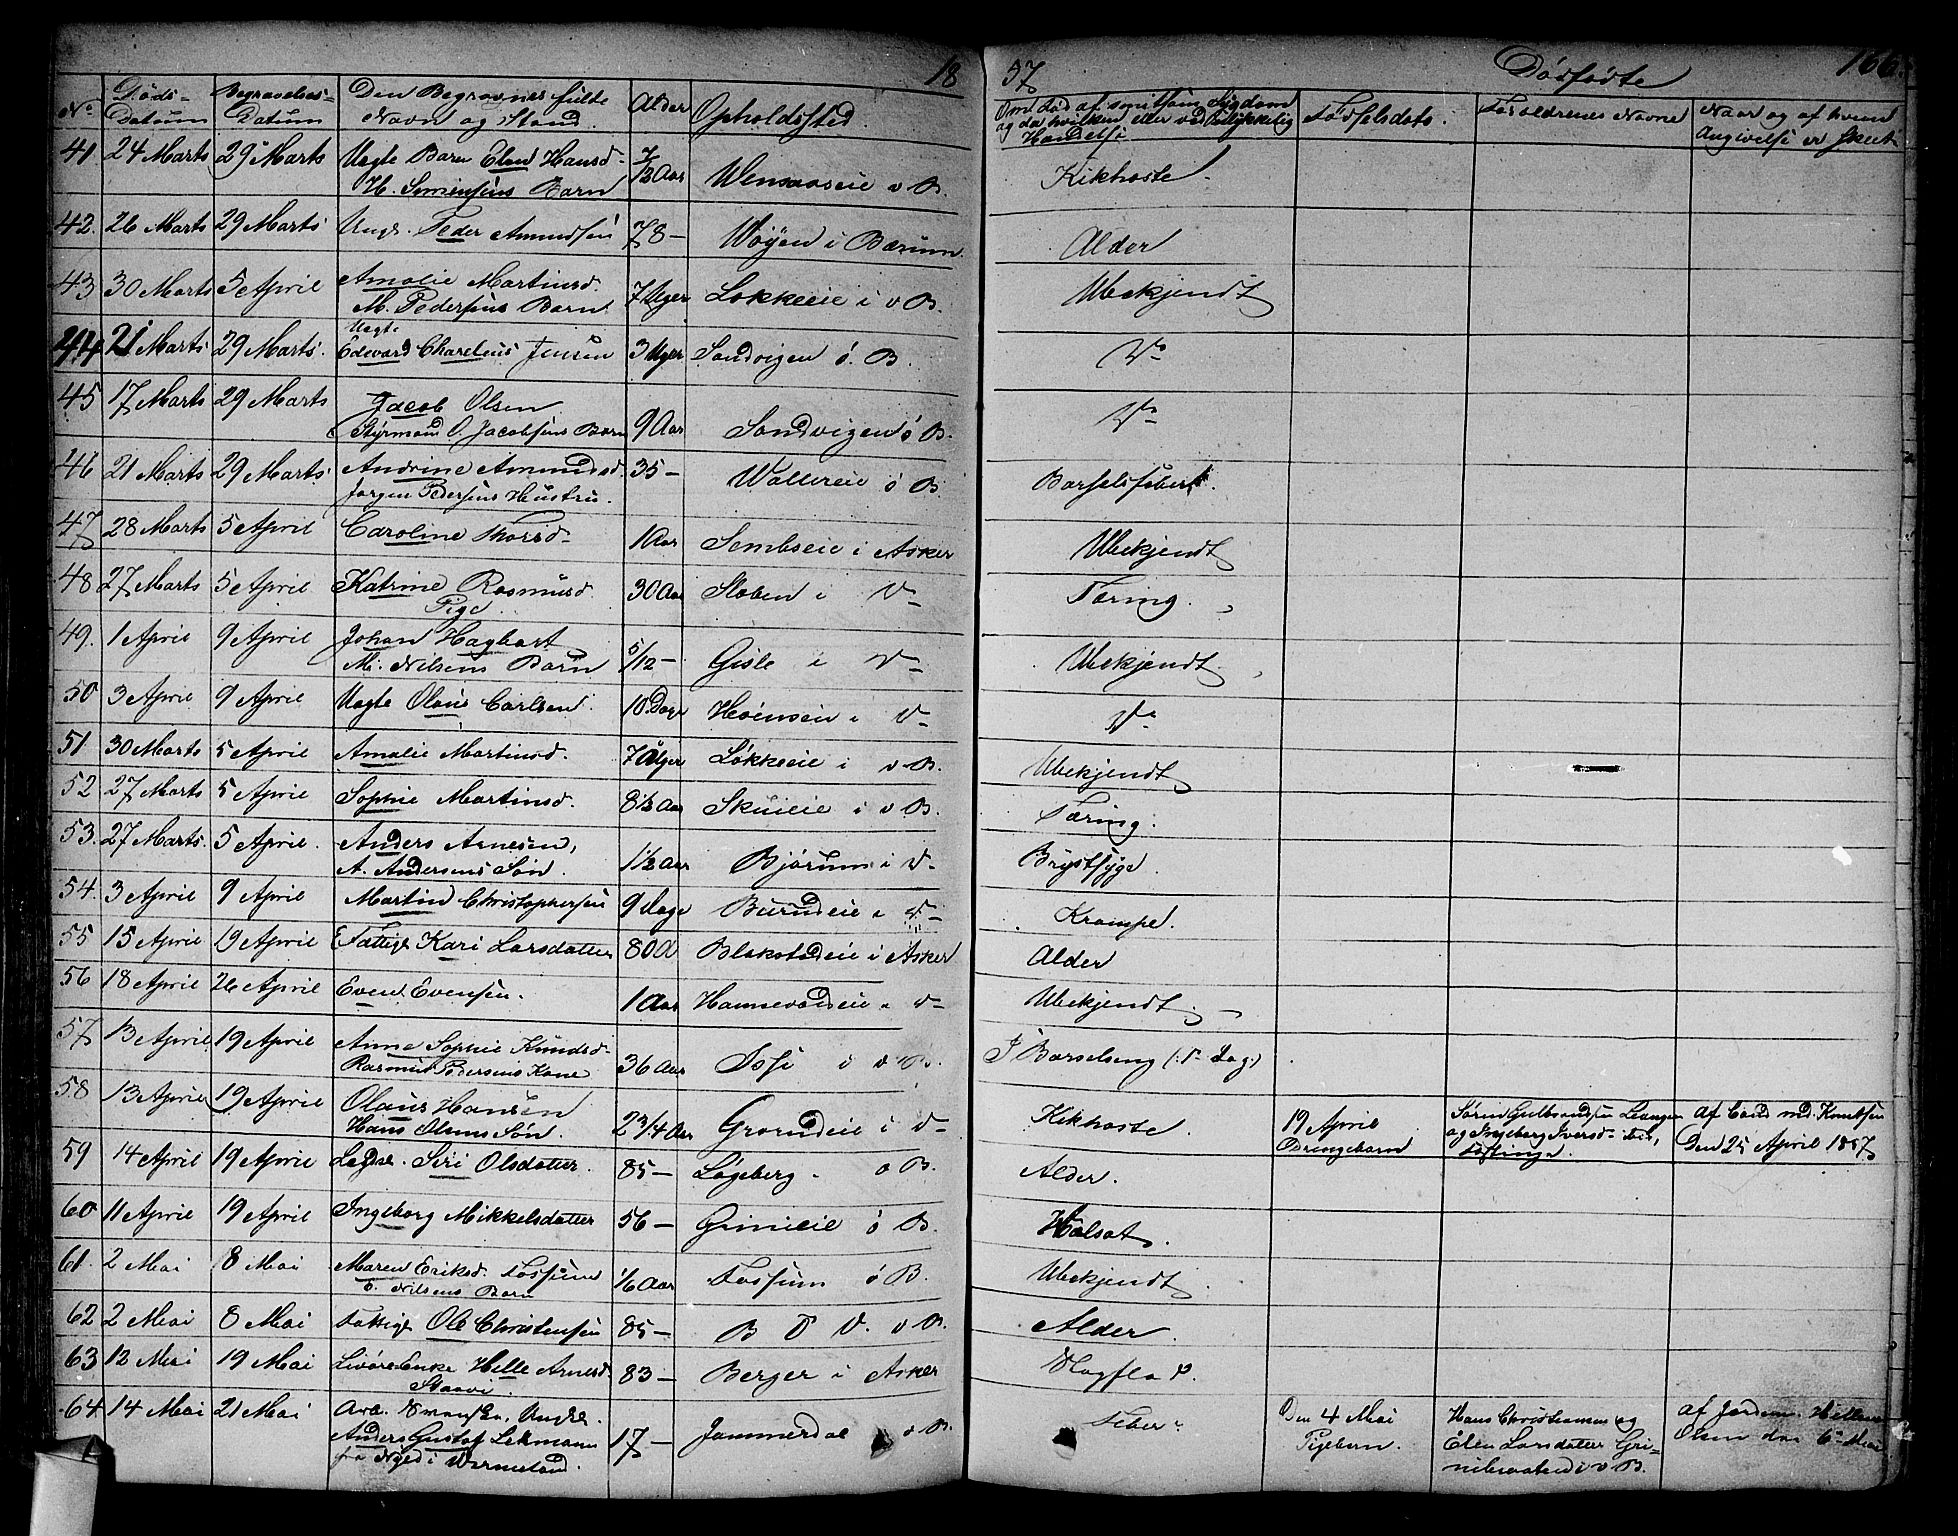 18 57 Dødfødte 166
No. Døds-Datum Begravelses-Datum Den Begravnes fulde Navn og Stand Alder Opholdssted. Om død af smitsom Sygdom og da hvilken eller ved Ulykkelig Hændelse Fødselsdato. Forældrenes Navne Naar og af hvem Angivelse er skeet
41 24 Marts 29 Marts Uægte Barn Elen Hansd. Aar i v B. Kikhoste.
H. Simensens Barn
42. 26 Marts 29 Marts Ungk. Peder Amundsen 78 — Wøyen i Bærum Alder
43 30 Marts 5 April Amalie Martinsd. 7 Uger Løkkeeie i v B. Ubekjendt
M. Pedersens Barn
44 21 Marts 29 Marts. Uægte 3 Uger Sandvigen ø. B. Do
Edevard Charelius Jensen
45 17 Marts 29 Marts Jacob Olsen 9 Aar Sandvigen ø B. Do
Styrmand O. Jacobsens Barn
46 21 Marts 29 Marts Andrine Amundsd. 35 — Wallereie ø B. Barselfeber.
Jørgen Pedersens Hustru.
47 28 Marts 5 April Caroline Thorsd. 1 Aar Sembseie i Asker Ubekjendt
48 27 Marts 5 April Katrine Rasmusd. 30 Aar Staben i Do Tæring.
Pige
49. 1 April 9 April Johan Hagbart 5/12 — Gisle i Do Ubekjendt.
M. Nilsens Barn
50 3 April 9 April Uægte Olaus Carlsen. 10 Dage i Do Do
51 30 Marts 5 April Amalie Martinsd. 7 Uger Løkkeeie i v B. Ubekjendt
52 27 Marts 5 April Sophie Martinsd. 8 1/2 Aar Skuieie i v B. Tæring.
53. 27 Marts. 5 April. Anders Arnesen, 1 1/2 Aar Bjørum i Do Brystsyge
A. Andersens Søn.
54. 3 April 9 April Martin Christophersen 9 Dage Burudeie i Do Krampe.
55 15 April 19 April Fattige Kari Larsdatter 80 A Blakstadeie i Asker Alder
56 18 April 26 April Even Evensen. 1 Aar i Do Ubekjendt.
57 13 April 19 April Anne Sophie Knudsd. 36 Aar v B. I Barselseng
Rasmus Pedersens Kone
58 13 April 19 April Olaus Hansen 2 3/4 Aar i Do Kikhoste. 19 April Drengebarn
Hans Olsens Søn. og Ingeborg Iversd. Den 25 April 1857
59 14 April 19 April Siri Olsdatter. 85 — Løgeberg. ø B. Alder.
60 11 April 19 April Ingeborg Mikkelsdatter 56 — Grinieie ø B. Halsot.
61. 2 Mai 8 Mai Maren Eriksd. Fossum 1/6 Aar Fossum ø B. Ubekjendt.
E. Nilsens Barn
62 2 Mai 8 Mai Fattige Ole Christensen 85 — v B. Alder.
63 12 Mai 19 Mai Enke Helle Arnesd. 83 — Berger i Asker
64 14 Mai 21 Mai Arb. Ungk. 17 — Jammerdal v B. Feber. Den 4 Mai Hans Christiansen og
Anders Gustaf Lekmann Pigebarn. Elen Larsdatter
fra Nyed i Wermeland. i v B. Olsen den 6 Mai